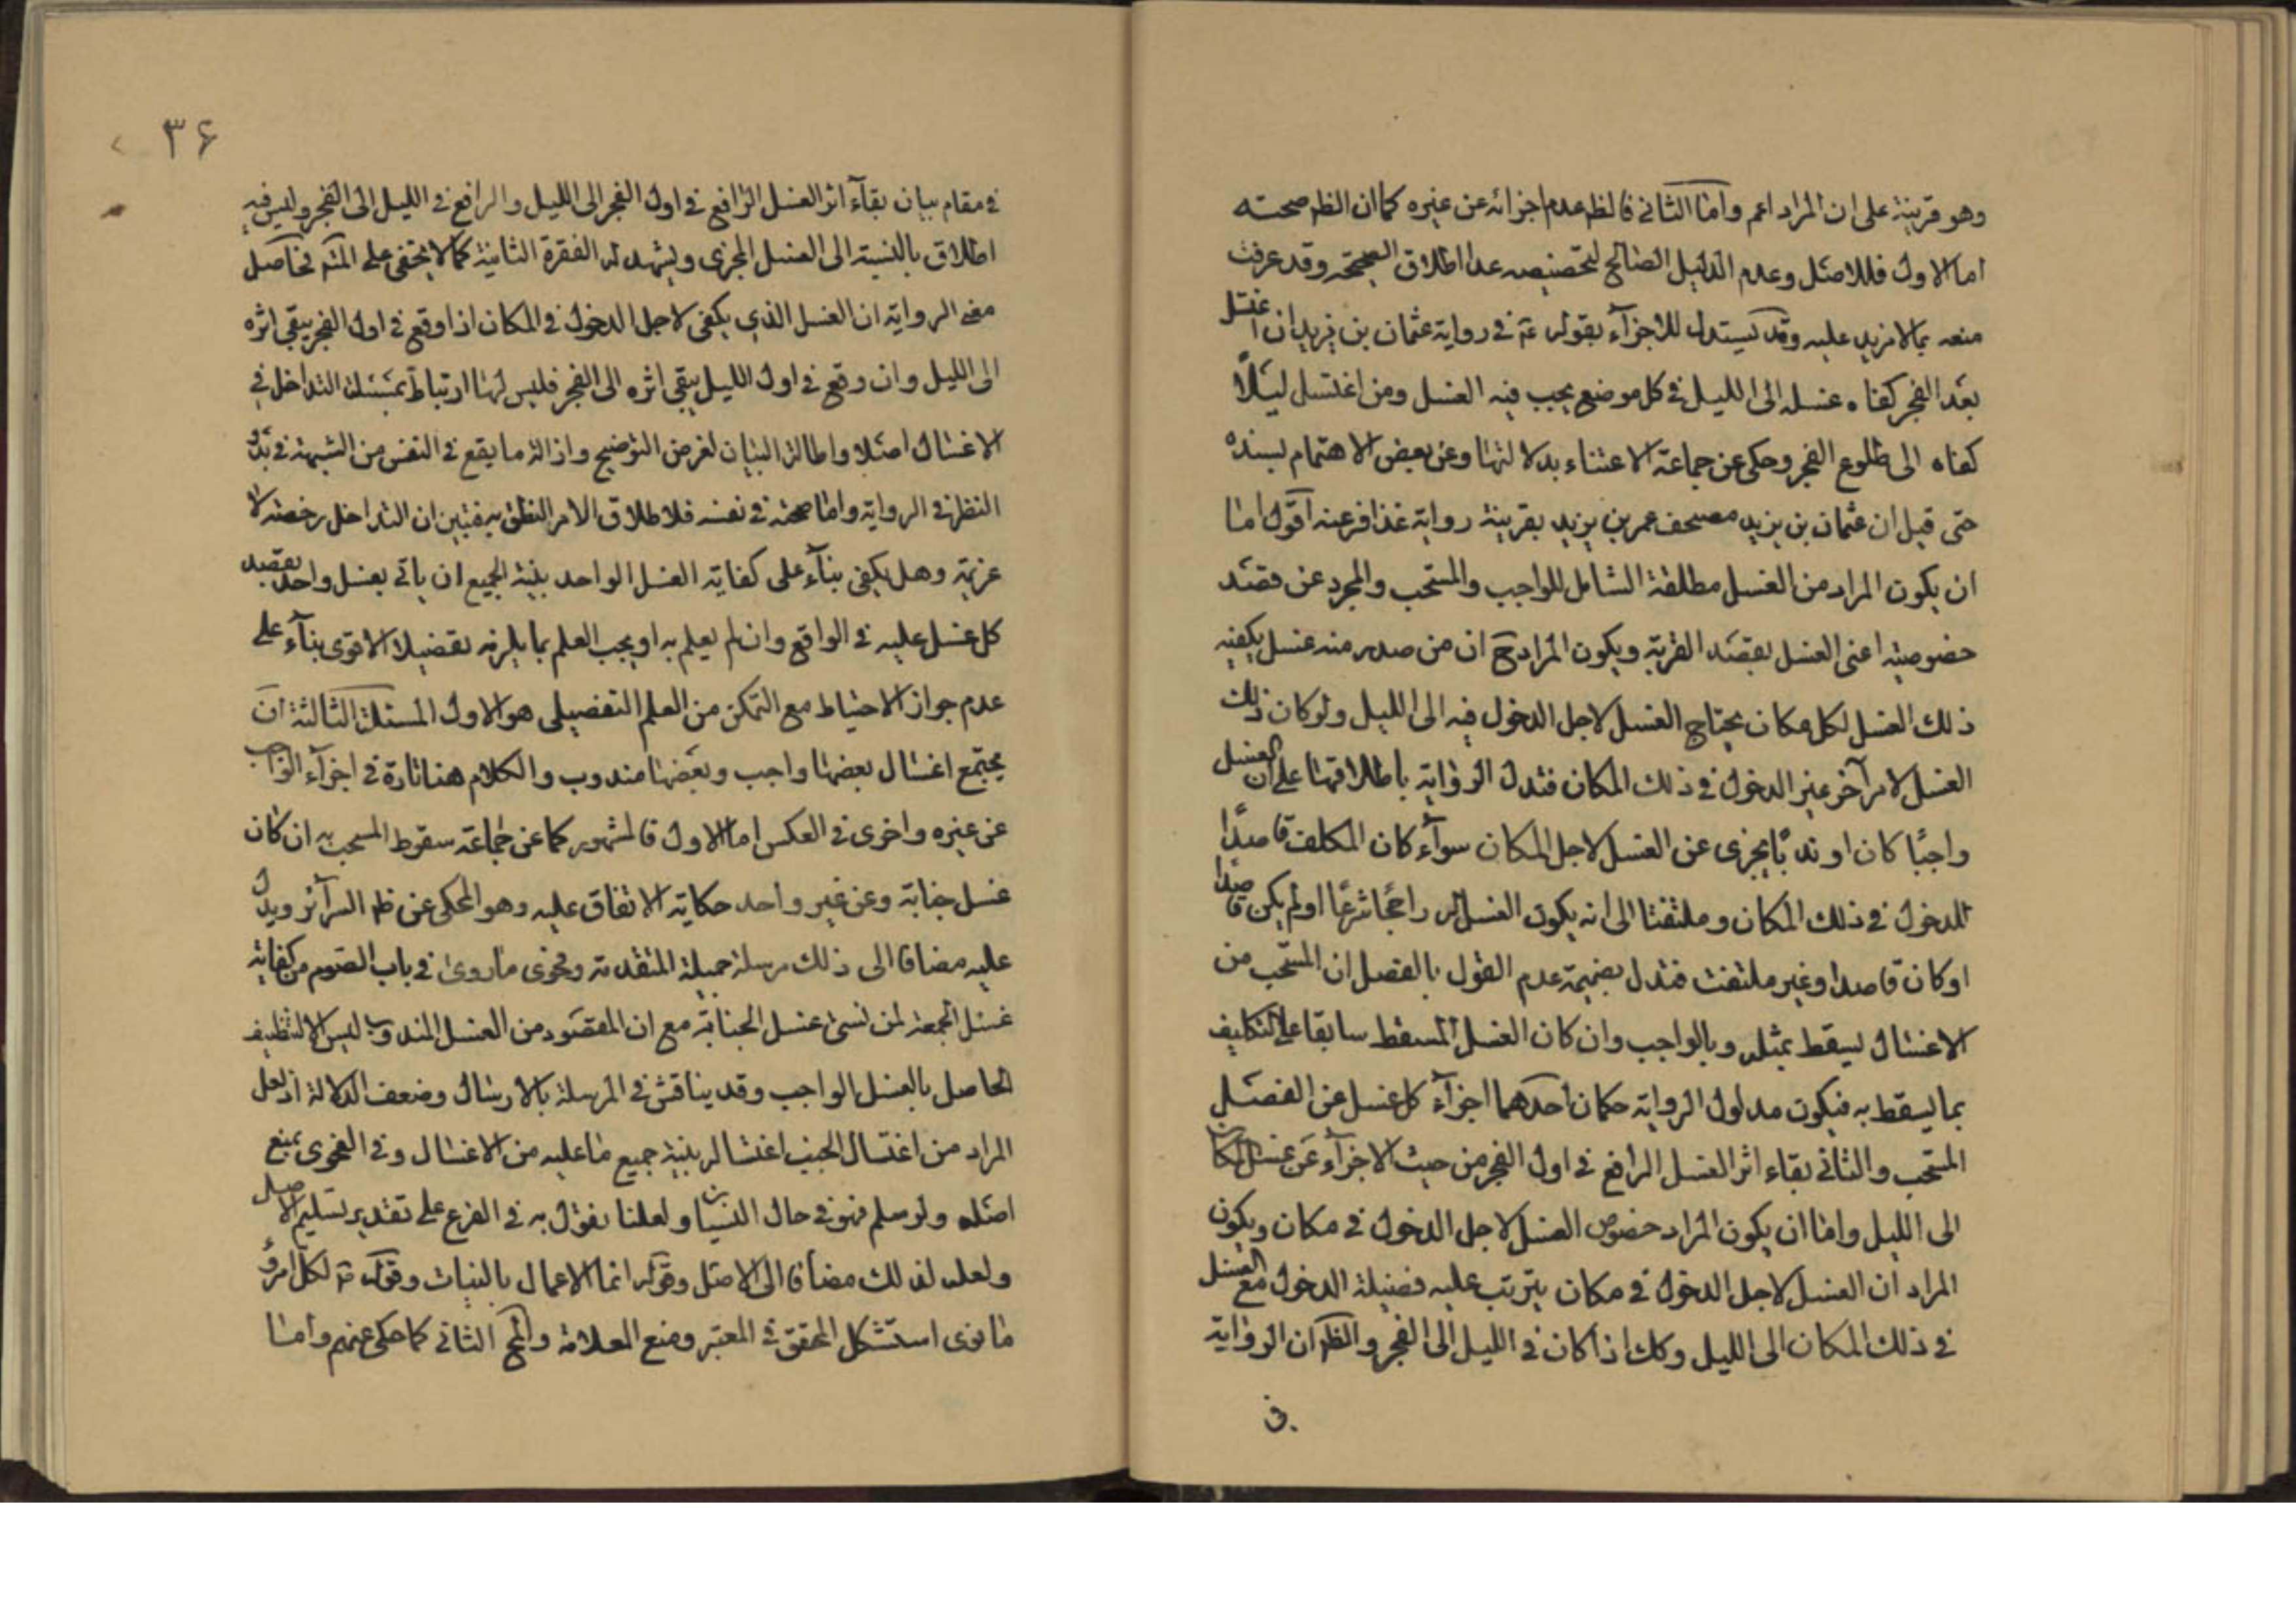 وهو قرينة على ان المراد اعم واما الثانى فالظ عدم اجزائه عن غيره كما ان الظ صحته
اما الاول فللاصل وعدم الدليل الصالح لتخصيصه عدا اطلاق الصحيحة وقد عرفت
منعه بما لا مزيد عليه وقد يستدل للاجزآء بقوله ع في رواية عثمان بن يزيد ان اغتسل
بعد الفجر كفاه غسله الى الليل في كل موضع يجب فيه الغسل ومن اغتسل ليلاً
كفاه الى طلوع الفجر وحكى عن جماعة الاعتناء بدلالتها وعن بعض الاهتمام بسنده
حتى قيل ان عثمان بن يزيد مصحف عمر بن يزيد بقرينة رواية عذافر عنه اقول اما
ان يكون المراد من الغسل مطلقه الشامل للواجب والمستحب والمجرد عن قصد
خصوصيته اعنى الغسل بقصد القربة ويكون المراد ح ان من صدر منه غسل يكفيه
ذلك الغسل لكل مكان يحتاج الغسل لاجل الدخول فيه الى الليل ولو كان ذلك
الغسل لامر آخر غير الدخول في ذلك المكان فتدل الرواية باطلاقها على ان الغسل
واجبًا كان او ندبًا يجزى عن الغسل لاجل المكان سوآء كان المكلف قاصدًا
للدخول في ذلك المكان وملتفتا الى انه يكون الغسل له راجحًا شرعًا او لم يكن قاصدا
او كان قاصدا وغير ملتفت فتدل بضميمة عدم القول بالفصل ان المستحب من
الاغسال يسقط بمثله وبالواجب وان كان الغسل المسقط سابقا على التكليف
بما يسقط به فيكون مدلول الرواية حكمان احدهما اجزآء كل غسل عن الغسل
المستحب والثانى بقاء اثر الغسل الرافع في اول الفجر من حيث الاجزآء عن غسل المكان
الى الليل واما ان يكون المراد خصوص الغسل لاجل الدخول في مكان ويكون
المراد ان الغسل لاجل الدخول في مكان يترتب عليه فضيلة الدخول مع الغسل
في ذلك المكان الى الليل وكك اذا كان في الليل الى الفجر والظ ان الرواية
في
٣۶
في مقام بيان بقآء اثر الغسل الرافع في اول الفجر الى الليل والرافع في الليل الى الفجر وليس فيه
اطلاق بالنسبة الى الغسل المجزى ويشهد له الفقرة الثانية كما لا يخفى على المتم فحاصل
معنى الرواية ان الغسل الذي يكفى لاجل الدخول في المكان اذا وقع في اول الفجر يبقى اثره
الى الليل وان وقع في اول الليل يبقى اثره الى الفجر فليس لها ارتباط بمسئلة التداخل في
الاغسال اصلا واطالة البيان لغرض التوضيح وازالة ما يقع في النفس من الشبهة في بدو
النظر في الرواية واما صحته في نفسه فلاطلاق الامر المتعلق به فتبين ان التداخل رخصة لا
عزيمة وهل يكفى بنآء على كفاية الغسل الواحد بنية الجميع ان ياتى بغسل واحد بقصد
كل غسل عليه في الواقع وان لم يعلم به او يجب العلم بما يلزمه تفصيلا الاقوى بنآء على
عدم جواز الاحتياط مع التمكن من العلم التفصيلى هو الاول المسئلة الثالثة ان
يجتمع اغسال بعضها واجب وبعضها مندوب والكلام هنا تارة في اجزآء الواجب
عن غيره واخرى في العكس اما الاول فالمشهور كما عن جماعة سقوط المستحب به ان كان
غسل جنابة وعن غير واحد حكاية الاتفاق عليه وهو المحكى عن ظ السرآئر ويدل
عليه مضافا الى ذلك مرسلة جميلة المتقدمة وفحوى ما روى في باب الصوم من كفاية
غسل الجمعة لمن نسى غسل الجنابة مع ان المقصود من الغسل المندوب ليس الا التنظيف
الحاصل بالغسل الواجب وقد يناقش في المرسلة بالارسال وضعف الدلالة اذ لعل
المراد من اغتسال الجنب اغتساله بنية جميع ما عليه من الاغسال وفي الفحوى بمنع
اصله ولو سلم فهو في حال النسيان ولعلنا نقول به في الفرع على تقدير تسليم الاصل
ولعله لذلك مضافا الى الاصل وقوله انما الاعمال بالنيات وقوله ع لكل امرؤ
ما نوى استشكل المحقق في المعتبر ومنع العلامة والمح الثانى كما حكى عنهم واما